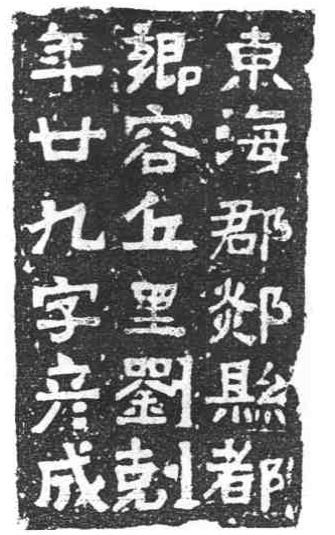 東海郡郯縣都
鄉容丘里劉剋
年廿九字彦成